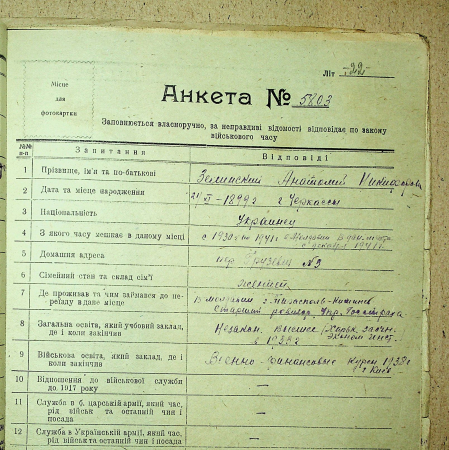 Літ -22-
Місце
для
фотокартки
Анкета № 5803
Заповнюється власноручно, за неправдиві відомості відповідає по закону
військового часу
№№
п-п
Запитання
Відповіді
1 Прізвище, ім'я та по-батькові Зелинский Анатолий
2 Дата та місце народження 1899 г Черкассы
3 Національність Украинец
4 З якого часу мешкає в даному місці с 1930 по 1941
5 Домашня адреса пер. №9
6 Сімейний стан та склад сім'ї
7 Де проживав та чим займався до пе-
реїзду в дане місце Старший ревизор Упр. Госстраха
8 Загальна освіта, який учбовий заклад,
де і коли закінчив в 1938 г
9 Військова освіта, який заклад, де і
коли закінчив Военно-финансовые курсы 1938 г
г Киев
10 Відношення до військової служби
до 1917 року —
11 Служба в б. царській армії, який час,
рід військ та останній чин і
посада —
12 Служба в Українській армії, який час,
рід військ та останній чин і посада —